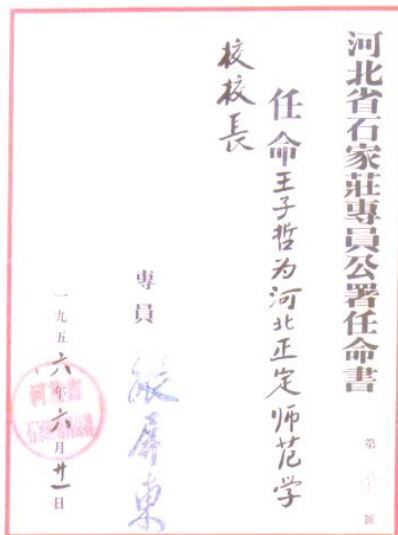 河北省石家莊專員公署任命書
第 號
任命王子哲为河北正定师范学
校校長
專員 張屏東
一九五六年六月廿一日
河北省